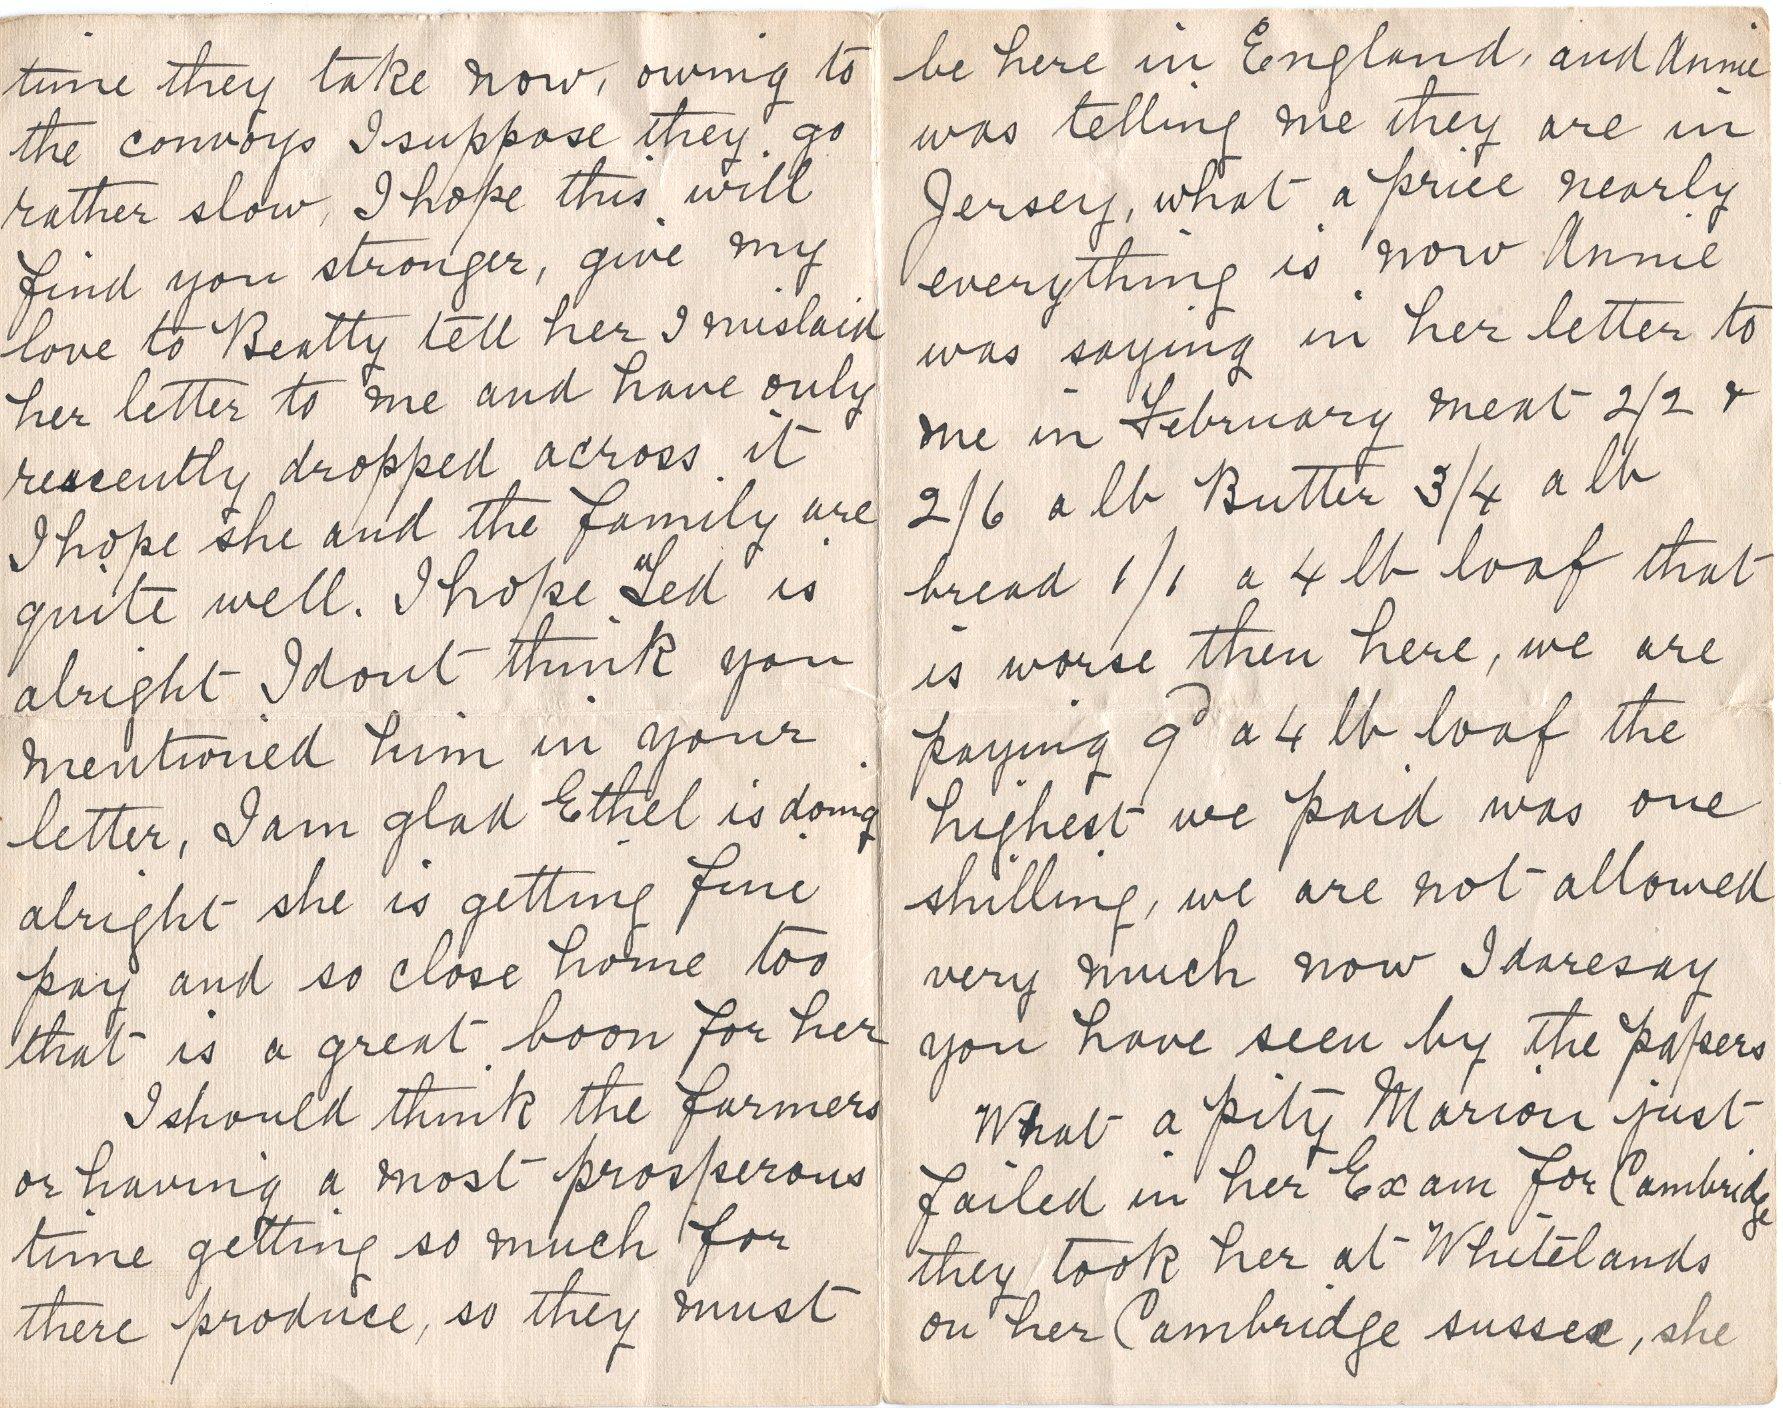 time they take now, owing to
the convoys I suppose they go
rather slow, I hope this will
find you stronger, give my
love to Beatty tell her I mislaid
her letter to me and have only
rescently dropped across it
I hope she and the family are
quite well. I hope Ted is
alright I dont think you
mentioned him in your
letter, I am glad Ethel is doing
alright she is getting fine
pay and so close home too
that is a great boon for her
I should think the farmers
or having a most prosperous
time getting so much for
there produce, so they must
be here in England, and Annie
was telling me they are in
Jersey, what a price nearly
everything is now Annie
was saying in her letter to
me in February meat 2/2 &
2/6 a lb Butter 3/4 a lb
bread 1/1 a 4 lb loaf that
is worse then here, we are
paying 9d a 4 lb loaf the
highest we paid was one
shilling, we are not allowed
very much now I daresay
you have seen by the papers
What a pity Marion just
failed in her Exam for Cambridge
they took her at Whitelands
on her Cambridge sussex, she